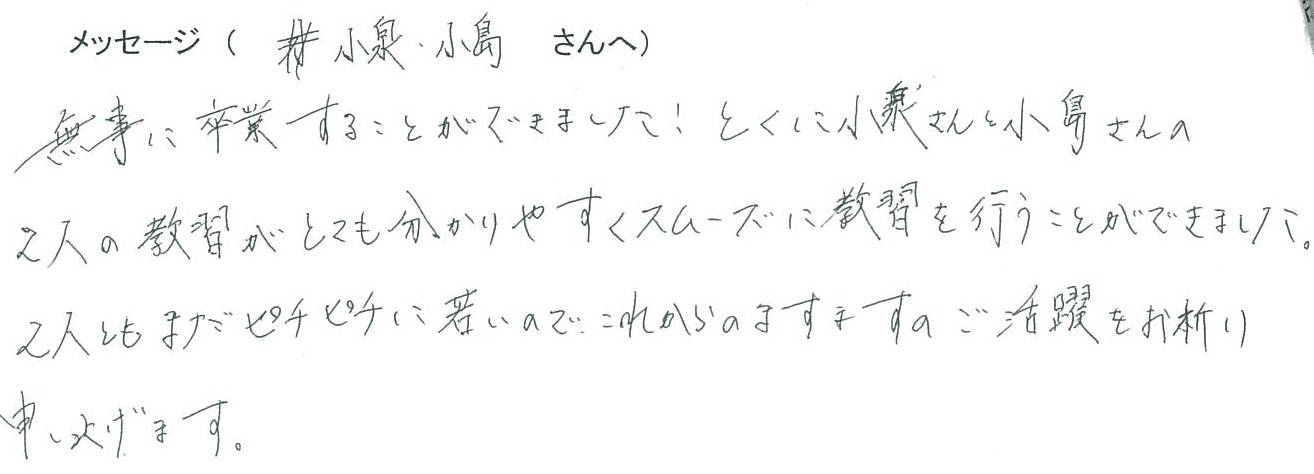 メッセージ ( 小泉・小島 さんへ)
無事に卒業することができました！とくに小泉さんと小島さんの
2人の教習がとても分かりやすくスムーズに教習を行うことができました。
2人ともまだピチピチに若いので、これからのますますのご活躍をお祈り
申し上げます。